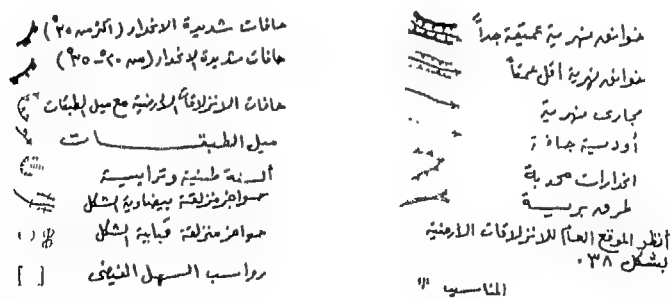 خوانق نهرية عميقة جداً
خوانق نهرية أقل عمقاً
مجارى نهرية
أودية جافة
انحدارات محدبة
طرق برية
أنظر الموقع العام للانزلاقات الأرضية
بشكل ٣٨ .
حافات شديدة الانحدار (أكثر من ٣٥°)
حافات شديدة الانحدار (من ٢٠°-٣٥°)
حافات الانزلاقات الأرضية مع ميل الطبقات
ميل الطبقات
ألسنة طينية وترابية
حواجز منزلقة بيضاوية الشكل
حواجز منزلقة قبابية الشكل
رواسب السهل الفيضى